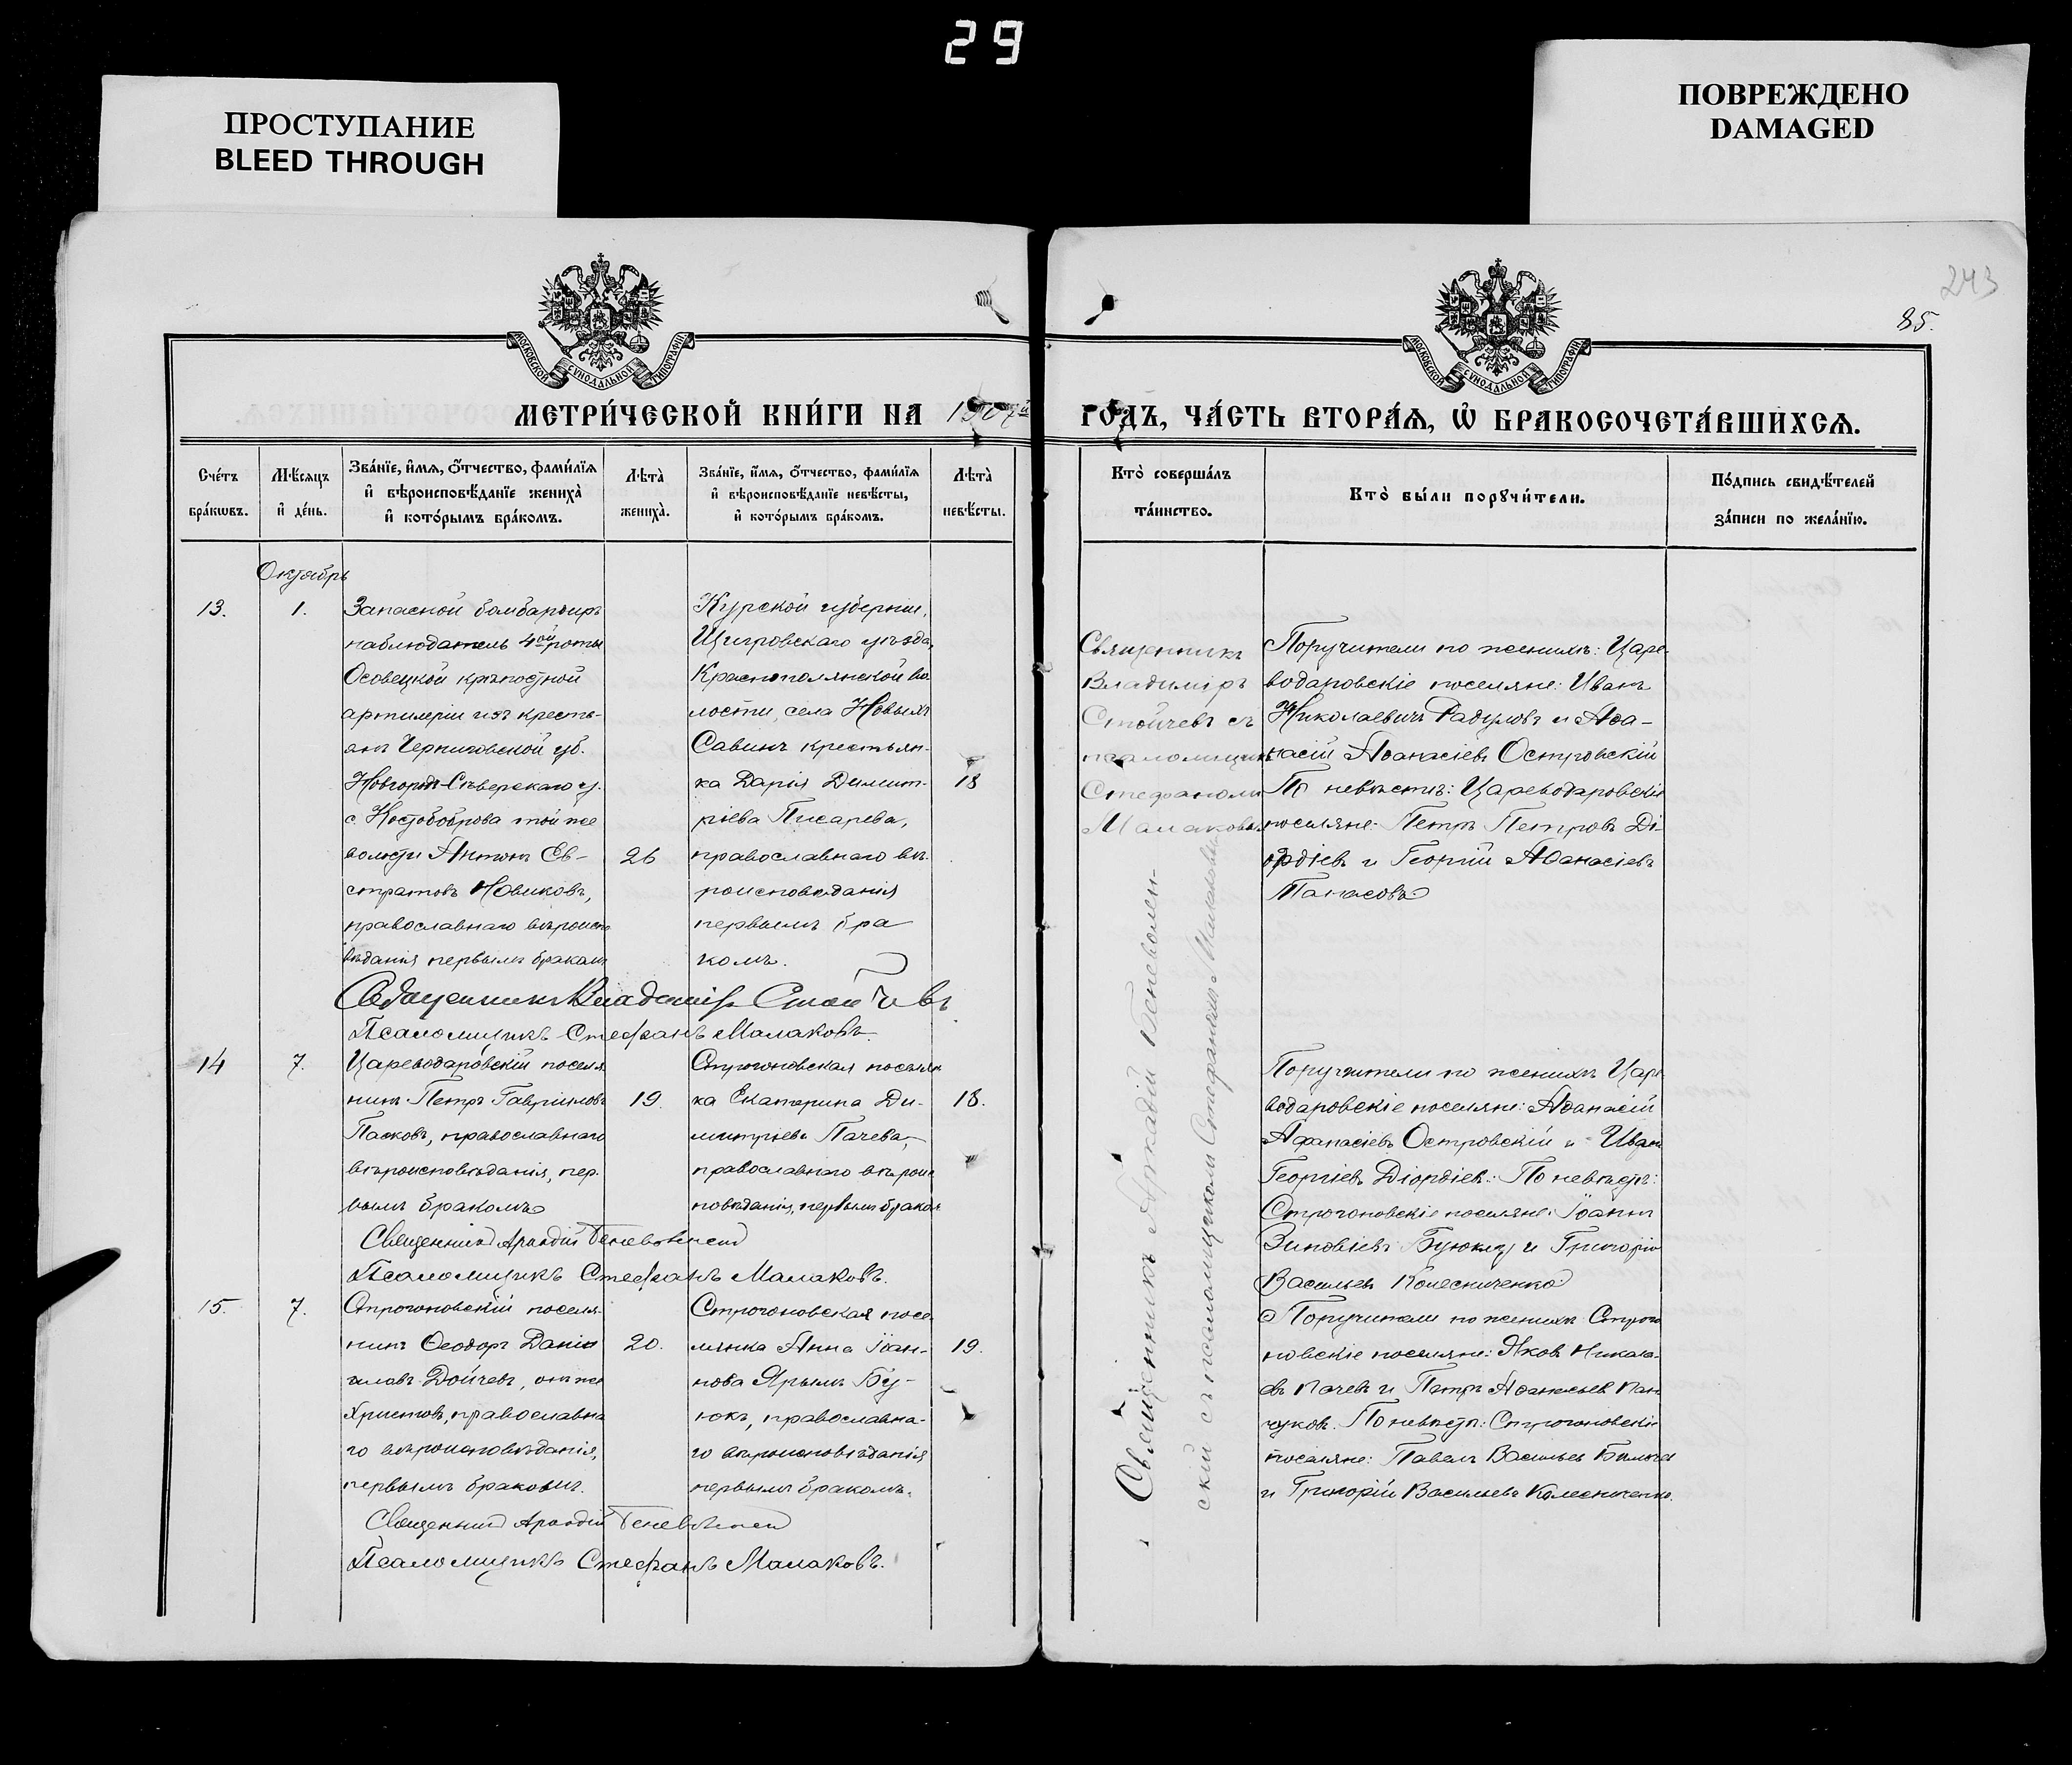 29
ПРОСТУПАНИЕ
BLEED THROUGH
ПОВРЕЖДЕНО
DAMAGED
243
85.
МОСКОВСКОЙ СѴНОДАЛЬНОЙ ТИПОГРАФІИ
МОСКОВСКОЙ СѴНОДАЛЬНОЙ ТИПОГРАФІИ
МЕТРИ́ЧЕСКОЙ КНИ́ГИ НА 1907й ГО́ДЪ, ЧА́СТЬ ВТОРА́Ѧ, Ѽ БРАКОСОЧЕТА́ВШИХСѦ.
Сче́тъ
бра́кѡвъ.
Мѣ́сѧцъ
и҆ де́нь.
Зва́нїе, и҆́мѧ, ѻ҆́тчество, фами́лїѧ
и҆ вѣроисповѣ́данїе жениха̀
и҆ кото́рымъ бра́комъ.
Лѣ́та̀
жениха̀.
Зва́нїе, и҆́мѧ, ѻ҆́тчество, фами́лїѧ
и҆ вѣроисповѣ́данїе невѣ́сты,
и҆ кото́рымъ бра́комъ.
Лѣ́та̀
невѣ́сты.
Кто̀ соверша́лъ
та́инство.
Кто̀ бы́ли порꙋчи́тели.
По́дпись свидѣ́телей
за́писи по жела́нїю.
Октябрь
13.
1.
Запасной бомбардиръ
наблюдатель 4ой роты
Осовецкой крѣпостной
артилеріи изъ кресть-
янъ Черниговской губ.
Новгородъ-Сѣверскаго у.
с. Костобоброва той же
волости Антонъ Ев-
стратовъ Новиковъ,
православнаго вѣроиспо
вѣданія первымъ бракомъ
26
Курской губерніи,
Щигровскаго уѣзда,
Краснополянской во
лости, села Новыхъ
Савинъ крестьян-
ка Дарія Димит-
ріева Писарева,
православнаго вѣ-
роисповѣданія
первымъ бра
комъ.
18
Священникъ
Владиміръ
Стойчевъ съ
псаломщик
Стефаномъ
Малаковым
Поручители по женихѣ: Царе-
водаровскіе поселяне: Иванъ
Николаевичъ Радуловъ и Аѳа-
насій Аѳанасіевъ Островскій
По невѣстѣ: Цареводаровскіе
поселяне: Петръ Петровъ Ді-
ордіевъ и Георгій Аѳанасіевъ
Танасовъ
Священникъ Владиміръ Стойчевъ
Псаломщикъ Стефанъ Малаковъ.
14
7.
Цареводаровскій поселя
нинъ Петръ Гавріиловъ
Пасковъ, православнаго
вѣроисповѣданія, пер-
вымъ бракомъ
19.
Строгоновская поселян
ка Екатерина Ди-
митріева Пачева,
православнаго вѣроис
повѣданія, первымъ бракомъ
18.
Поручители по женихѣ Царе
водаровскіе поселяне: Аѳанасій
Афанасіевъ Островскій и Иванъ
Георгіевъ Діордіевъ. По невѣстѣ:
Строгоновскіе поселяне: Іоаннъ
Зиновіевъ и Григорій
Васильевъ Колесниченко
Священникъ Аркадій
Псаломщикъ Стефанъ Малаковъ.
15.
7.
Строгоновскій поселя-
нинъ Ѳеодоръ Даніи
иловъ Дойчевъ, онъ же
Христовъ, православна
го вѣроисповѣданія,
первымъ бракомъ.
20.
Строгоновская посе-
лянка Анна Іоан-
нова Ярымъ Бу-
юкъ, православна-
го вѣроисповѣданія
первымъ бракомъ.
19.
Поручители по женихѣ Строго
новскіе поселяне: Яковъ Никола-
евъ Пачевъ и Петръ Аѳанасьев Пан
чуковъ. По невѣстѣ: Строгоновскіе
поселяне: Павелъ Васильев
и Григорій Васильевъ Колесниченко.
Священникъ Аркадій
Псаломщикъ Стефанъ Малаковъ.
Священникъ Аркадій
скій съ псаломщикомъ Стефаномъ Малаковым